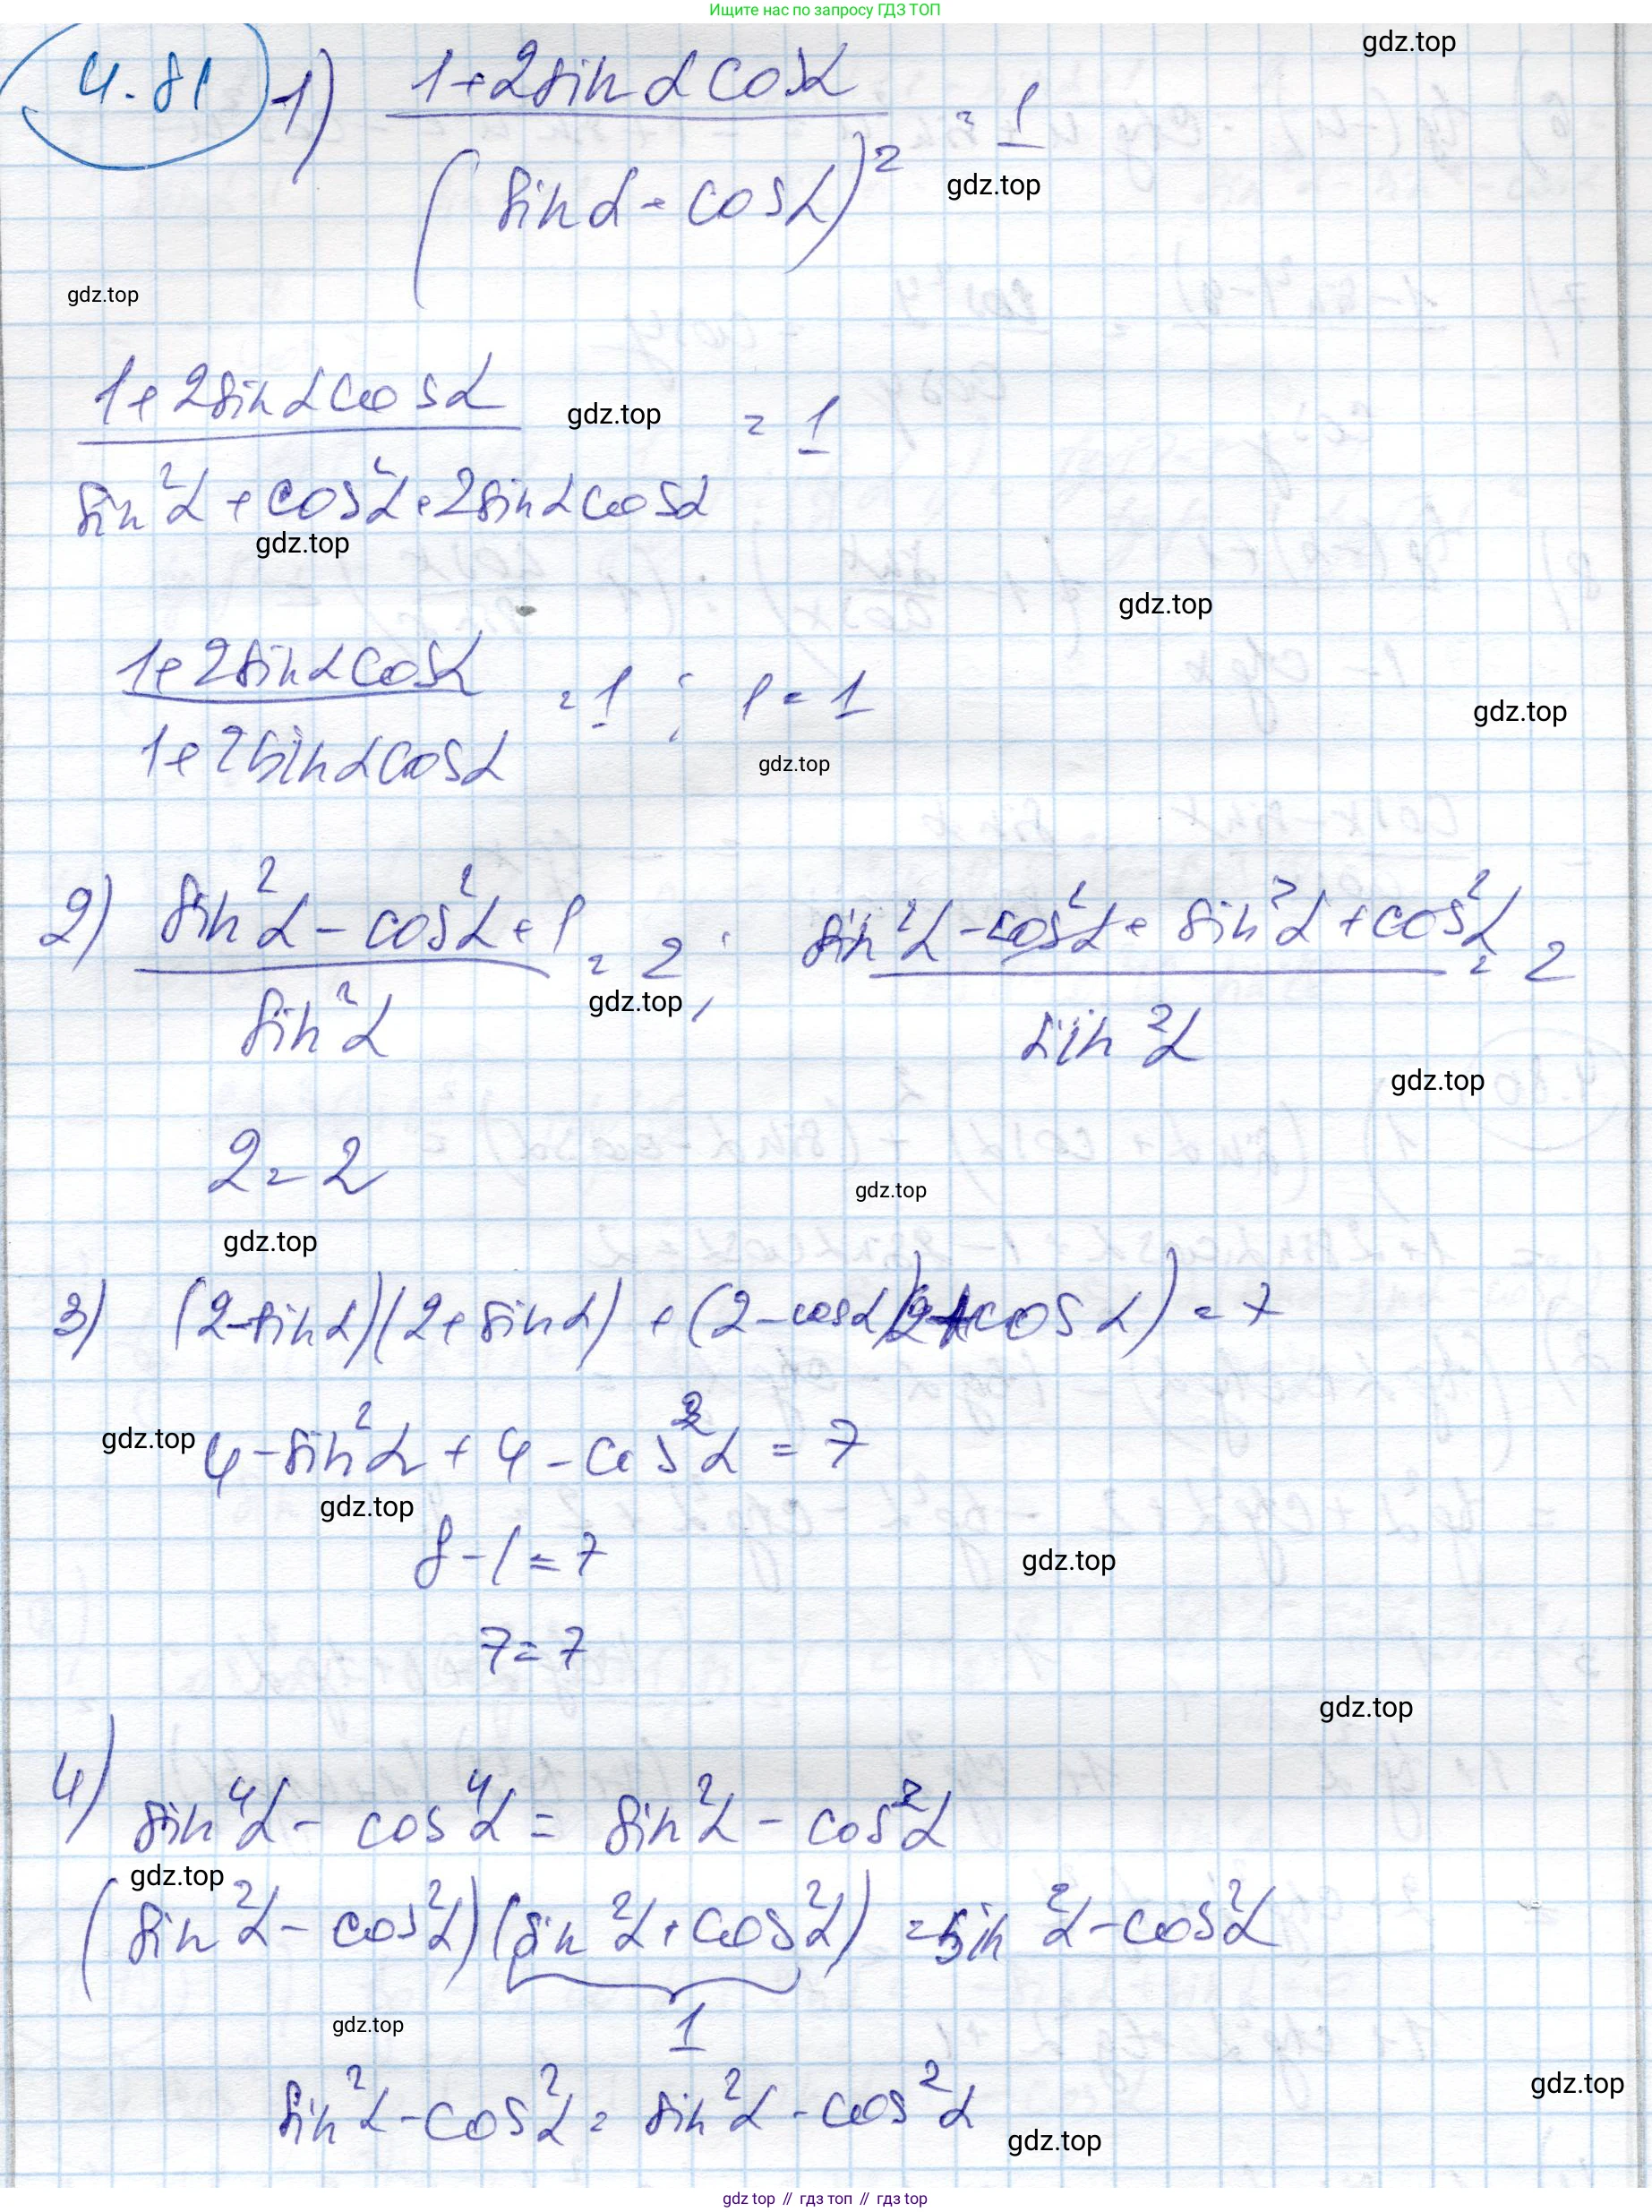 Ищите нас по запросу ГДЗ ТОП
gdz.top
4.81 1) (1+2sinαcosα)/(sinα+cosα)² = 1
gdz.top
gdz.top
(1+2sinαcosα)/(sin²α+cos²α+2sinαcosα) = 1
gdz.top
gdz.top
gdz.top
(1+2sinαcosα)/(1+2sinαcosα) = 1 ; 1=1
gdz.top
gdz.top
2) (sin²α-cos²α+1)/(sin²α) = 2 ; (sin²α-cos²α+sin²α+cos²α)/(sin²α) = 2
gdz.top
gdz.top
2=2
gdz.top
gdz.top
3) (2-sinα)(2+sinα)+(2-cosα)(2+cosα)=7
gdz.top 4-sin²α+4-cos²α=7
gdz.top
8-1=7
gdz.top
7=7
gdz.top
4) sin⁴α-cos⁴α=sin²α-cos²α
gdz.top
(sin²α-cos²α)(sin²α+cos²α)=sin²α-cos²α
gdz.top
1
sin²α-cos²α=sin²α-cos²α
gdz.top
gdz.top
gdz top // гдз топ // гдз top